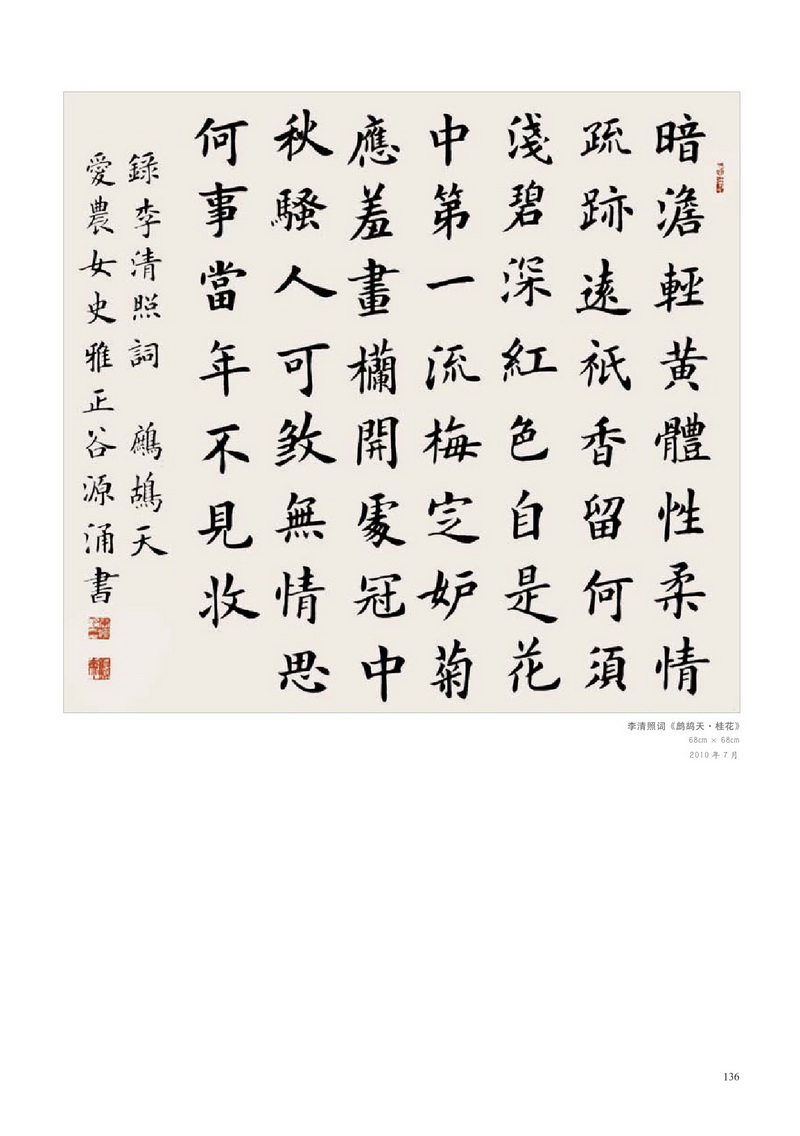 暗澹輕黄體性柔情
疏跡遠祇香留何須
淺碧深紅色自是花
中第一流梅定妒菊
應羞畫欄開處冠中
秋騷人可煞無情思
何事當年不見收
錄李清照詞 鷓鴣天
愛農女史雅正谷源涌書
李清照词《鹧鸪天·桂花》
68cm × 68cm
2010 年 7 月
136